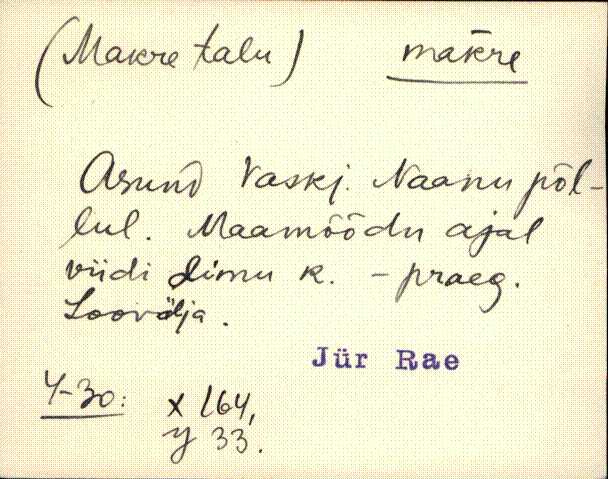 (Makre talu) makre
Asund Vaskj. Naanu põl-
lul. Maamõõdu ajal
viidi Limu k. - praeg.
Soovälja.
Jür Rae
4-30: x 164,
y 33.